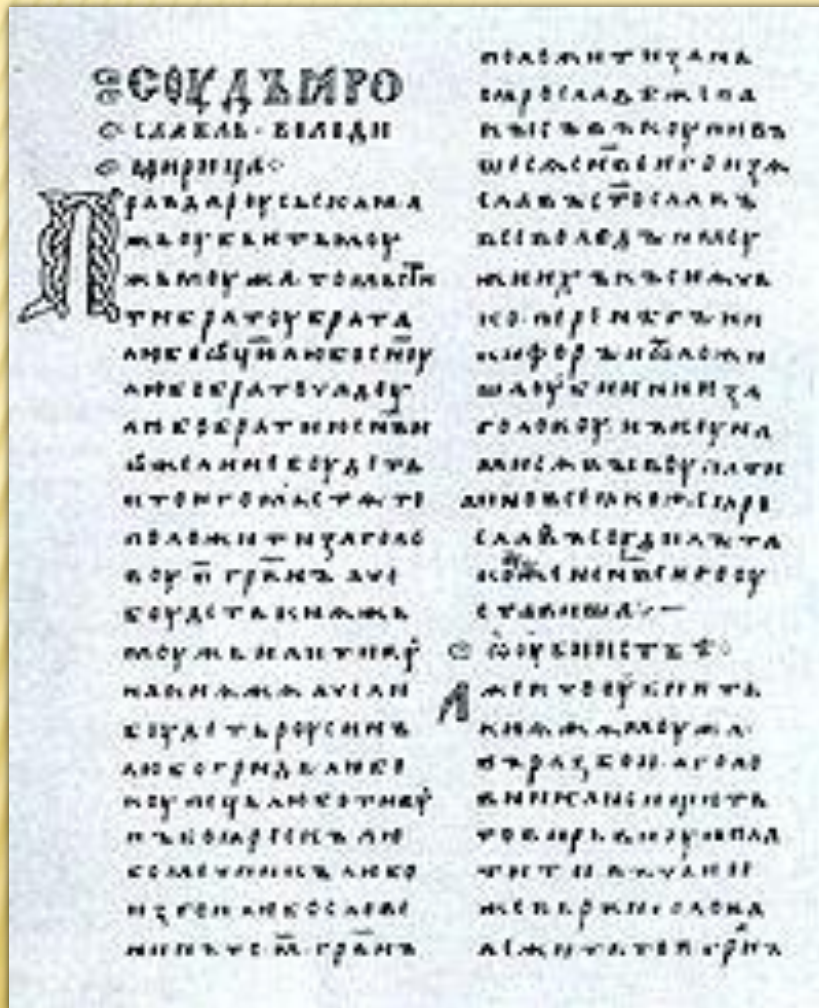 СОУДЪ ꙖРО
СЛАВЛЬ · ВОЛОДИ
МИРИЦА
ПРАВДА РОУСЬСКАꙖ А
ЖЬ ОУБИѤТЬ МОУ
ЖЬ МОУЖА ТО МЬСТИ
ТИ БРАТОУ БРАТА
ЛЮБО ѾЦЮ ЛЮБО СНОУ
ЛЮБО БРАТОУЧАДОУ
ЛЮБО БРАТНЮ СНВИ
ОЖЕ ЛИ НЕ БОУДЕТЬ
КТО ѤГО МЬСТѦ ТО
ПОЛОЖИТИ ЗА ГОЛО
ВОУ П ГРВНЪ АЧЕ
БОУДЕТЬ КНѦЖЬ
МОУЖЬ ИЛИ ТИВОУ
НА КНѦЖА АЧЕ ЛИ
БОУДЕТЬ РОУСИНЪ
ЛЮБО ГРИДЬ ЛЮБО
КОУПЕЦЬ ЛЮБО ТИВОУ
НЪ БОꙖРЕСКЪ ЛЮ
БО МЕЧНИКЪ ЛЮБО
ИЗГОИ ЛЮБО СЛОВЕ
НИНЪ ТО М ГРВНЪ
ПОЛОЖИТИ ЗА НЬ
ПО ꙖРОСЛАВѢ ЖЕ ПА
КЫ СЪВЪКОУПИВЪ
ШЕСѦ СНВЕ ѤГО ИЗѦ
СЛАВЪ СТОСЛАВЪ
ВСЕВОЛОДЪ И МОУ
ЖИ ИХЪ КЪСНѦЧЬ
КО ПЕРЕНѢГЪ НИ
КИФОРЪ И ѾЛОЖИ
ША ОУБИѤНИѤ ЗА
ГОЛОВОУ НЪ КОУНА
МИ СѦ ВЫКОУПАТИ
А ИНО ВСЕ ꙖКОЖЕ ꙖРО
СЛАВЪ СОУДИЛЪ ТА
КОЖЕ И СНВЕ ѤГО ОУ
СТАВИША
Ѡ ОУБИИСТВѢ
АЖЕ КТО ОУБИѤТЬ
КНѦЖА МОУЖА
ВЪ РАЗБОИ А ГОЛО
ВНИКА НЕ ИЩЮТЬ
ТО ВИРЬВНОУЮ ПЛА
ТИТИ ВЪ ЧЬѤИ
ЖЕ ВЕРВИ ГОЛОВА
ЛЕЖИТЬ ТО П ГРВНЪ